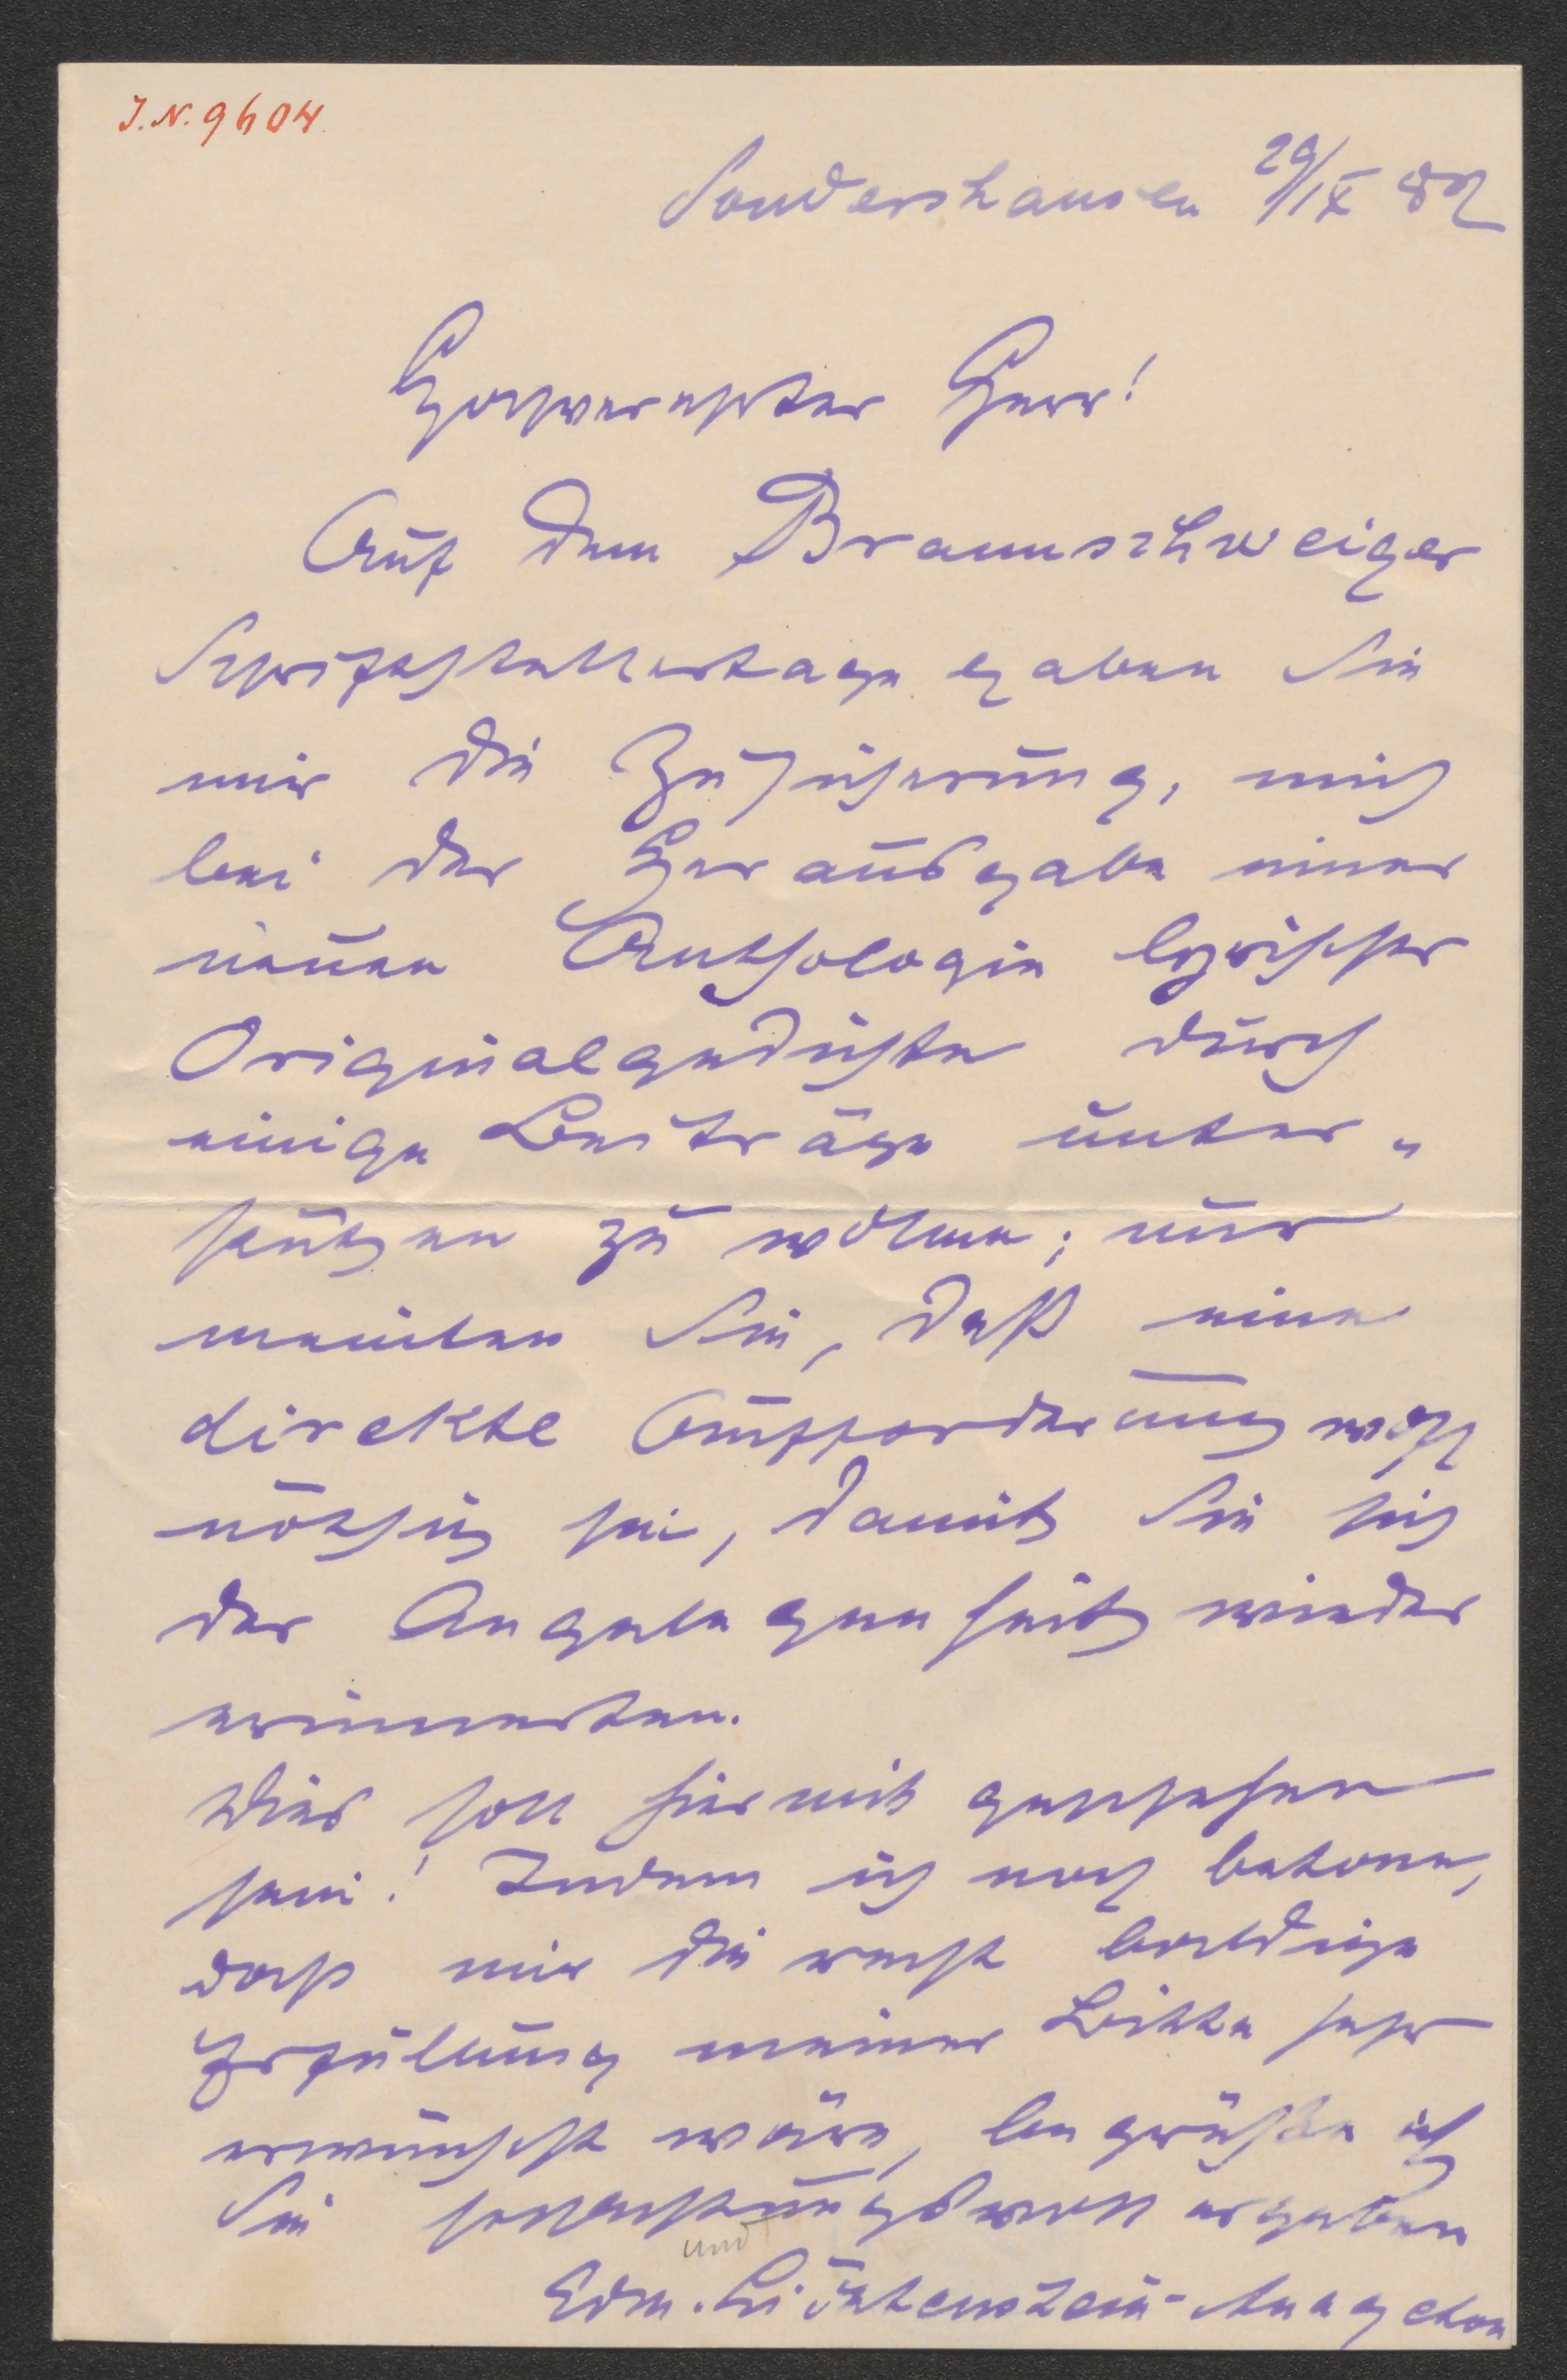 J.N. 9604
Sondershausen 29/IX 82
Hochverehrter Herr!
Auf dem Braunschweiger
Schriftstellertage gaben Sie
mir die Zusicherung, mich
bei der Herausgabe einer
neuen Anthologie lyrischer
Originalgedichte durch
einige Beiträge unter-
stützen zu wollen; nur
meinten Sie, daß eine
direkte Aufforderung noch
nöthig sei, damit Sie sich
der Angelegenheit wieder
erinnerten.
Dies soll hiermit geschehen
sein! Indem ich noch betone,
daß mir die recht baldige
Erfüllung meiner Bitte sehr
erwünscht wäre, begrüße ich
Sie hochachtungsvoll ergeben
und
Edm. Lichtenstein-